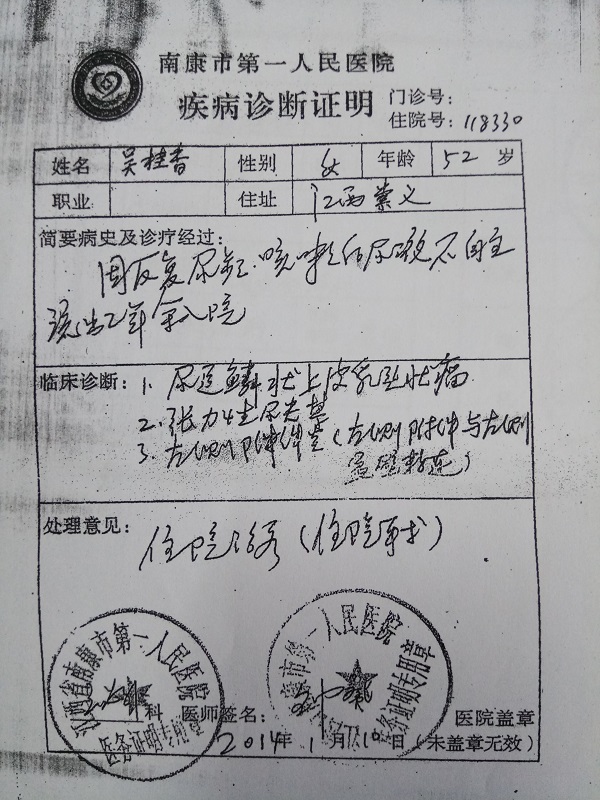 南康市第一人民医院
疾病诊断证明
门诊号：
住院号：118330
姓名 吴桂香 性别 女 年龄 52 岁
职业 住址 江西崇义
简要病史及诊疗经过：
因反复尿频、咳嗽后尿液不自主
流出2年余入院
临床诊断：1、尿道鳞状上皮乳头状瘤
2、张力性尿失禁
3、左侧附件（左侧附件与左侧
盆壁粘连）
处理意见：
住院（住院手术）
江西省南康市第一人民医院
医务证明专用章
南康市第一人民医院
医务证明专用章
科 医师签名： 医院盖章
2014年1月10日（未盖章无效）